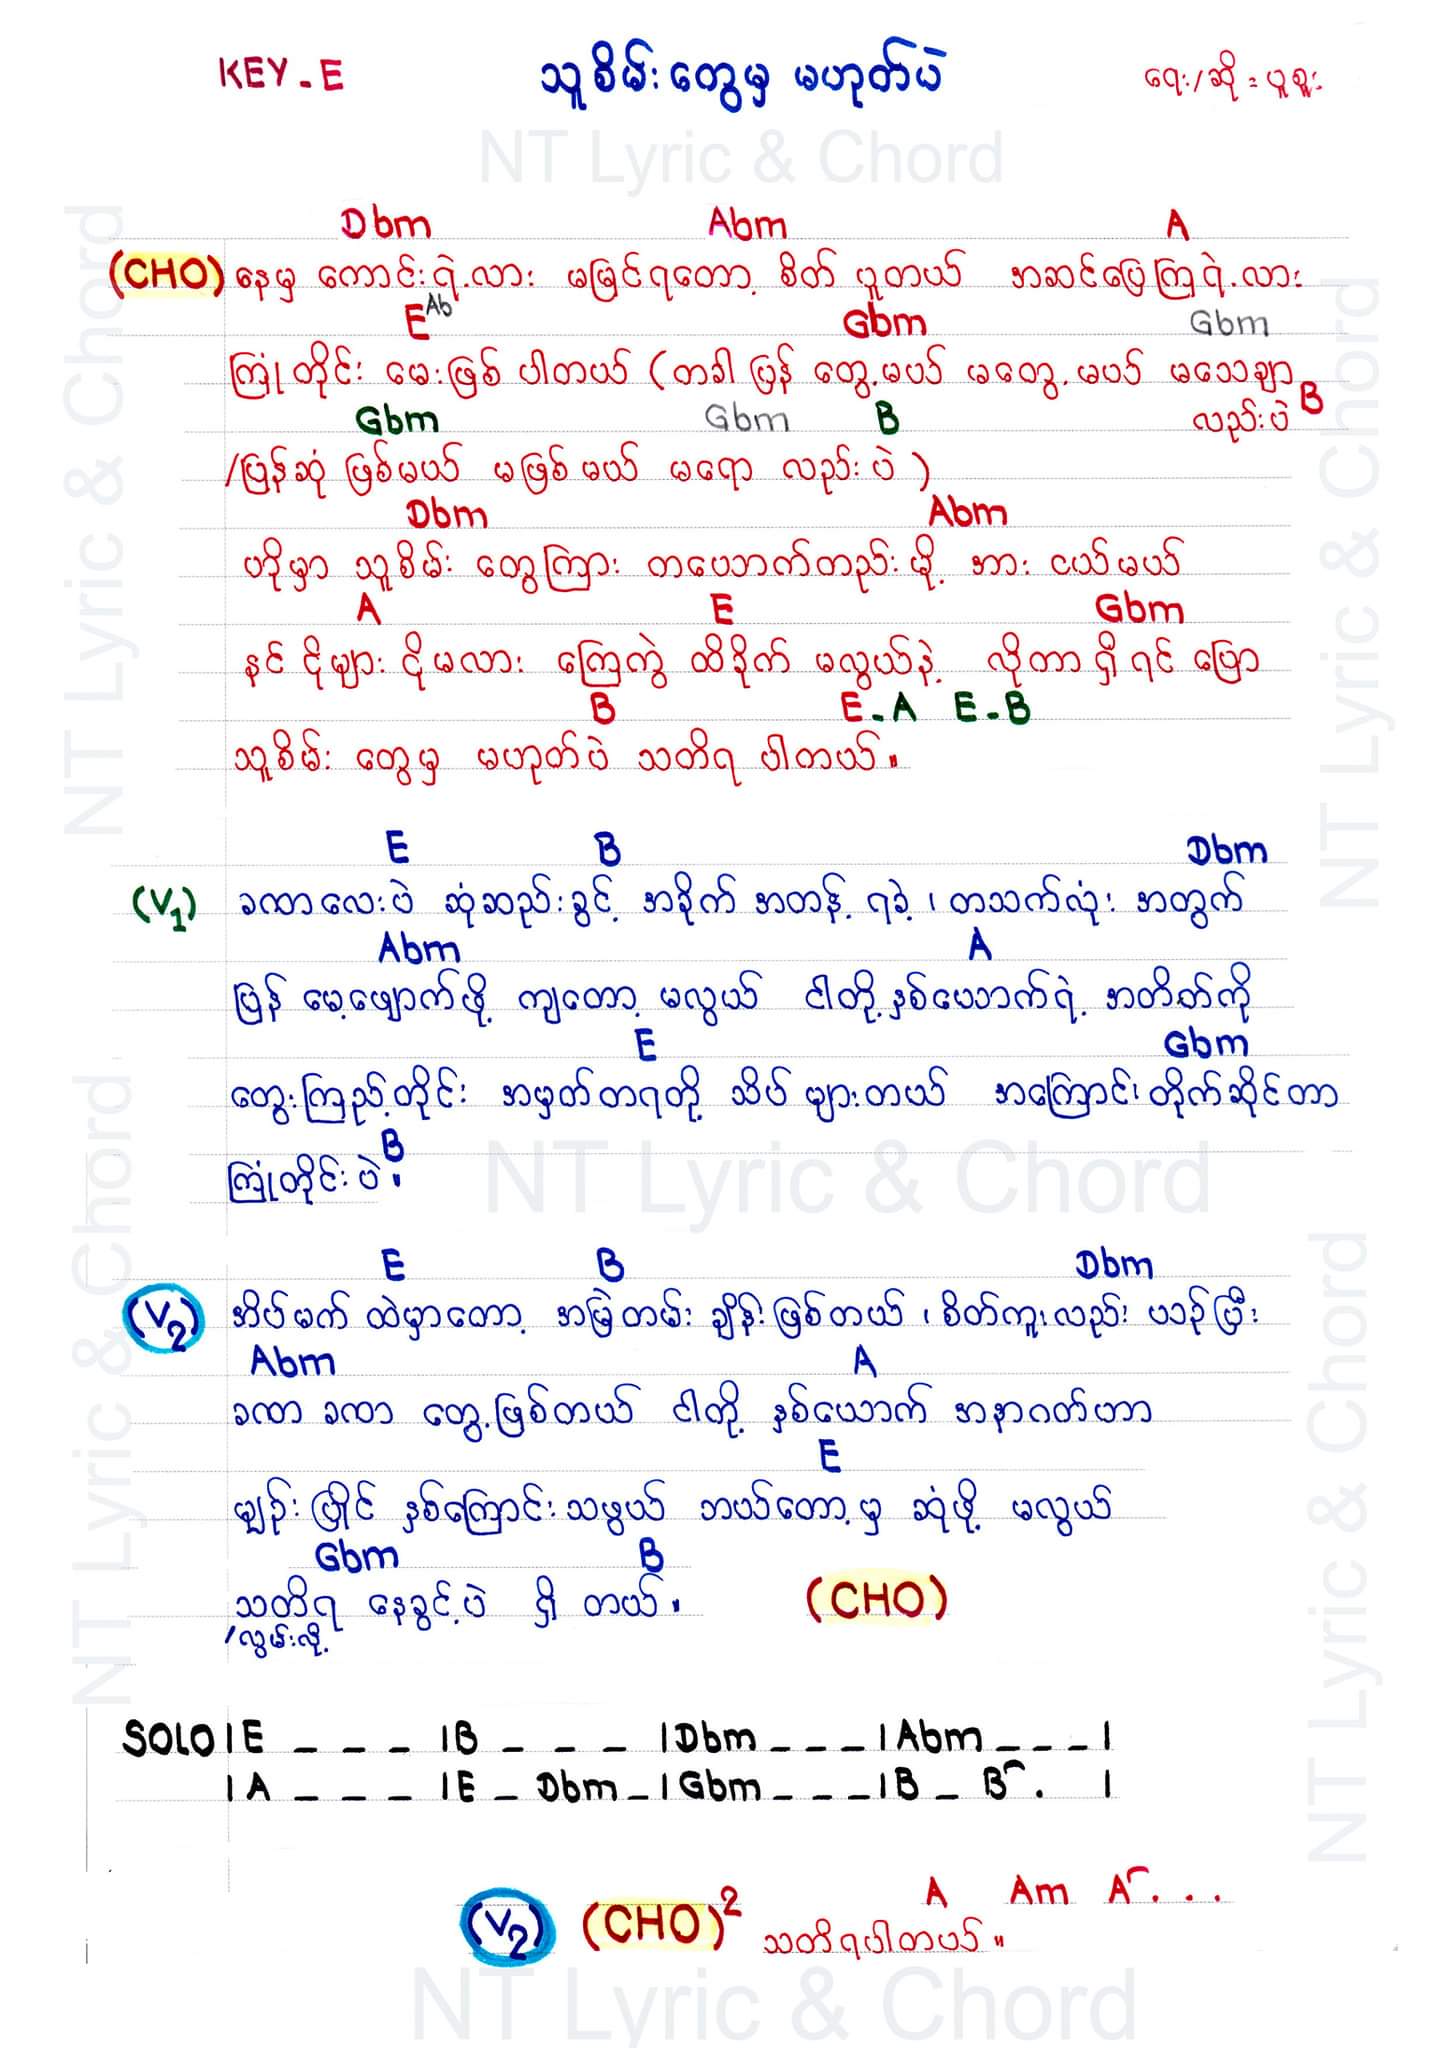 KEY - E
သူစိမ်းတွေမှ မဟုတ်ပဲ
ရေး/ဆို = ပူစူး
NT Lyric & Chord
Dbm Abm A
(CHO) နေမှ ကောင်းရဲ့လား မမြင်ရတော့ စိတ် ပူတယ် အဆင်ပြေကြရဲ့လား
E Ab Gbm Gbm
ကြုံတိုင်း မေးဖြစ် ပါတယ် (တခါ ပြန် တွေ့မယ် မတွေ့မယ် မသေချာ
Gbm Gbm B လည်းပဲ B
/ပြန်ဆုံ ဖြစ်မယ် မဖြစ်မယ် မရော လည်းပဲ )
Dbm Abm
ဟိုမှာ သူစိမ်း တွေကြား တယောက်တည်းမို့ အား ငယ်မယ်
A E Gbm
နင် ငိုများ ငိုမလား ကြေကွဲ ထိခိုက် မလွယ်နဲ့ လိုတာ ရှိရင် ပြော
B E - A E - B
သူစိမ်း တွေမှ မဟုတ်ပဲ သတိရ ပါတယ်။
E B Dbm
(V1) ခဏလေးပဲ ဆုံဆည်းခွင့် အခိုက် အတန့် ရခဲ့၊ တသက်လုံး အတွက်
Abm A
ပြန် မေ့ဖျောက်ဖို့ ကျတော့ မလွယ် ငါတို့ နှစ်ယောက်ရဲ့ အတိတ်ကို
E Gbm
တွေးကြည့်တိုင်း အမှတ်တရတို့ သိပ် များတယ် အကြောင်းတိုက်ဆိုင်တာ
B
ကြုံတိုင်းပဲ။
NT Lyric & Chord
E B Dbm
(V2) အိပ်မက် ထဲမှာတော့ အမြဲတမ်း ချိန်းဖြစ်တယ်၊ စိတ်ကူးလည်း ယဉ်ပြီး
Abm A
ခဏ ခဏ တွေ့ဖြစ်တယ် ငါတို့ နှစ်ယောက် အနာဂတ်ဟာ
E
မျဉ်းပြိုင် နှစ်ကြောင်းသဖွယ် ဘယ်တော့မှ ဆုံဖို့ မလွယ်
Gbm B
သတိရ နေခွင့်ပဲ ရှိ တယ်။ (CHO)
/လွမ်းလို့
SOLO | E _ _ _ | B _ _ _ | Dbm _ _ _ | Abm _ _ _ |
| A _ _ _ | E _ Dbm _ | Gbm _ _ _ | B _ B . |
A Am A . . .
(V2) (CHO)2 သတိရပါတယ်။
NT Lyric & Chord
NT Lyric & Chord
NT Lyric & Chord
NT Lyric & Chord
NT Lyric & Chord